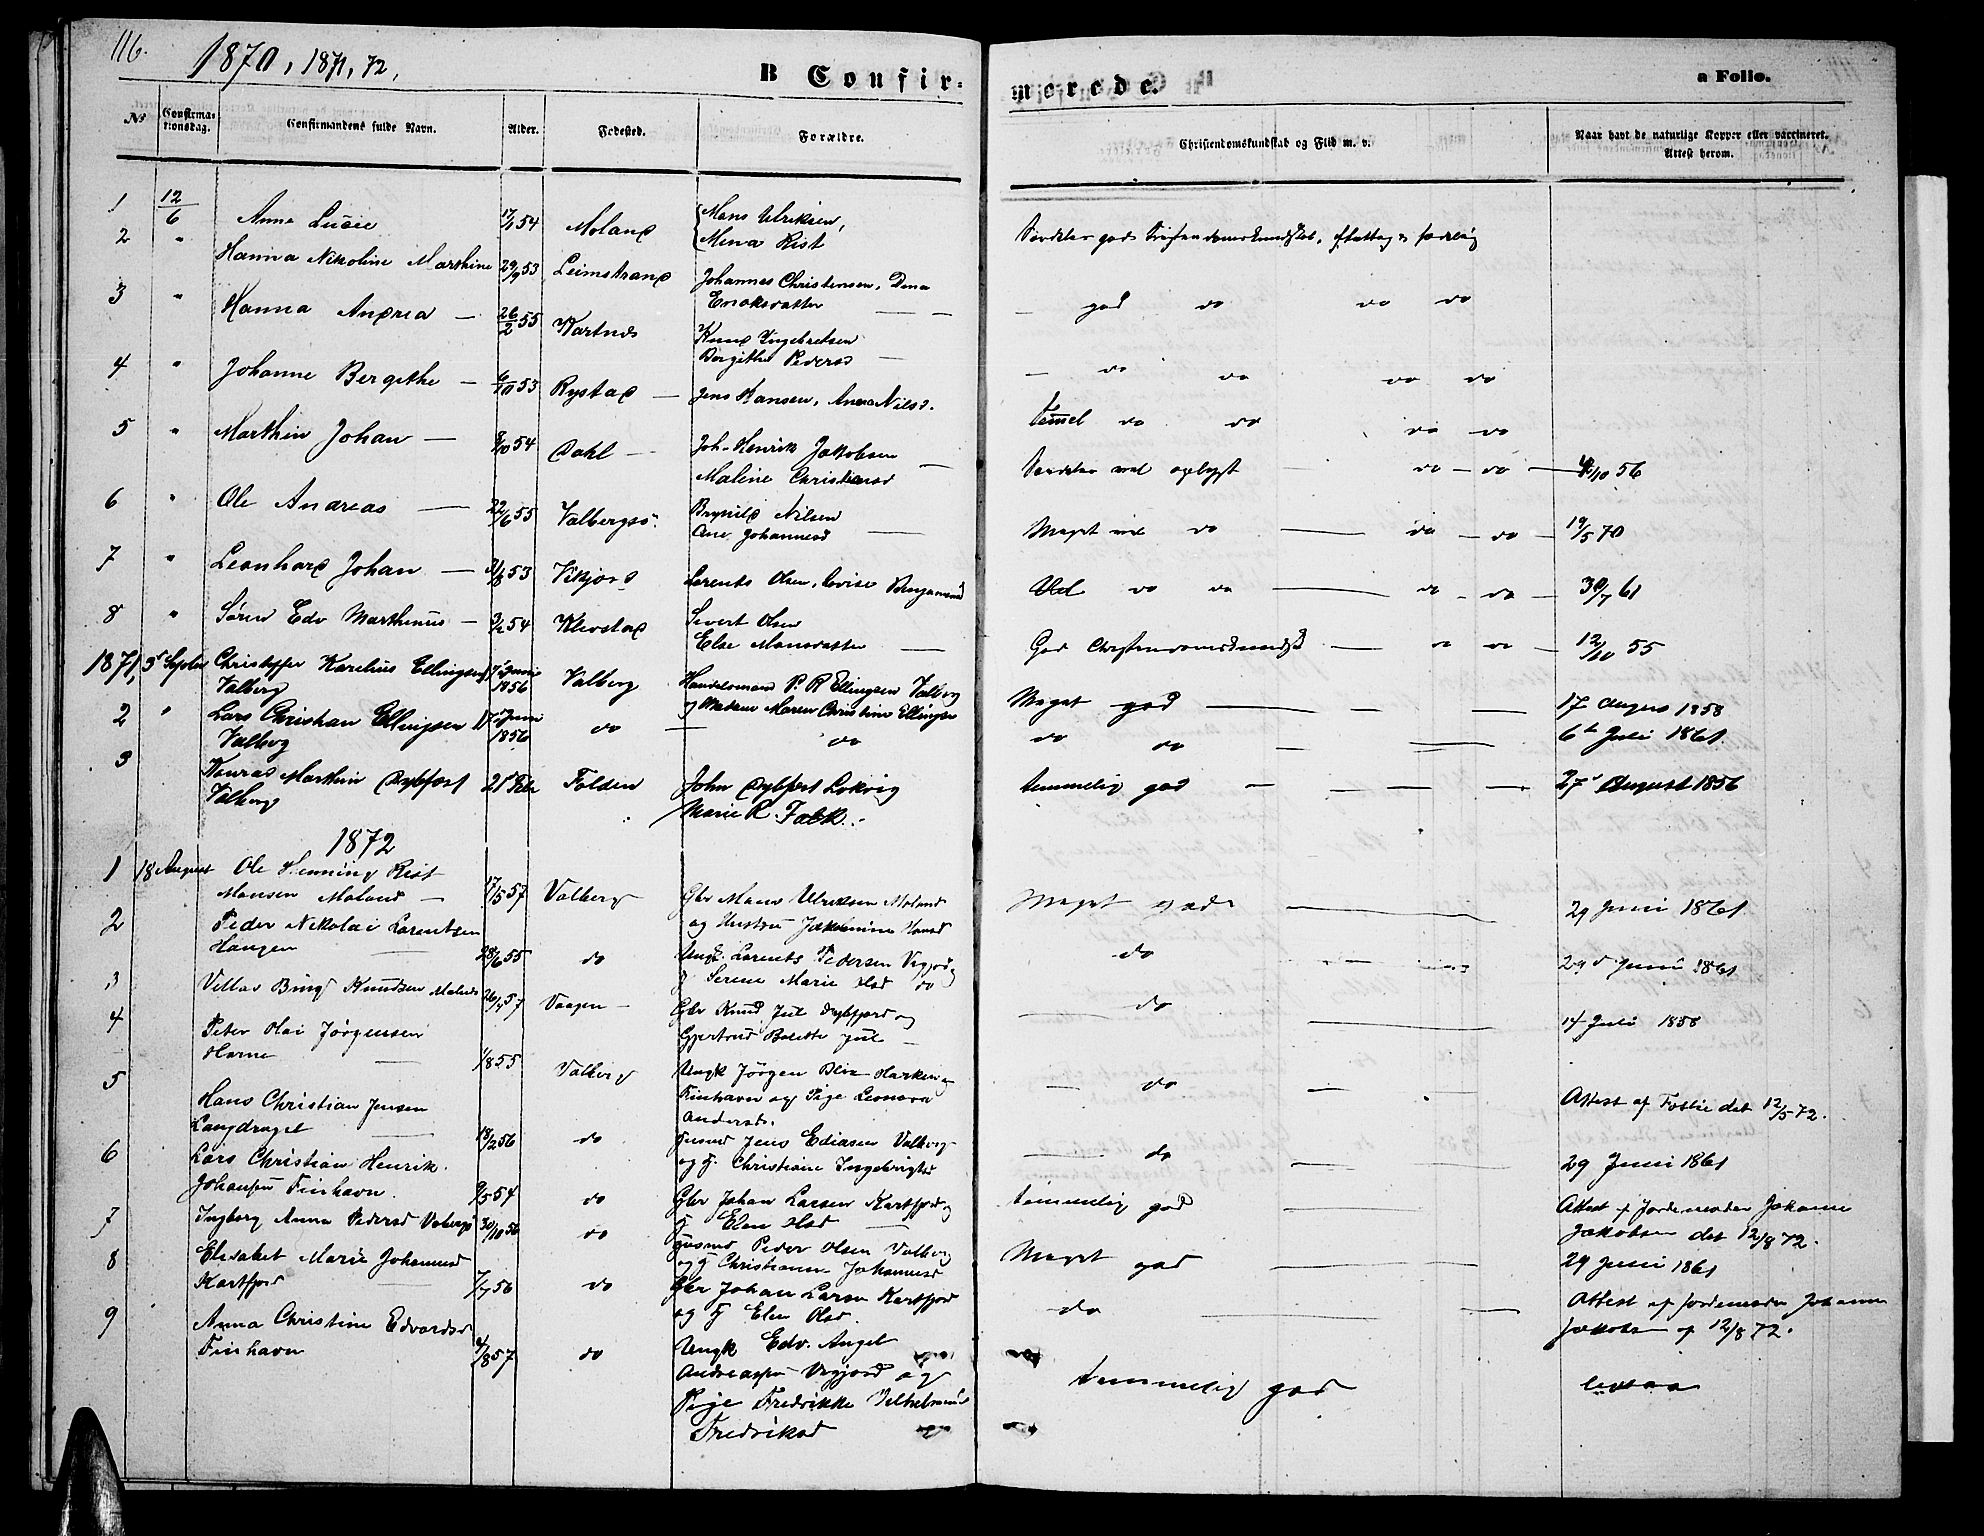 116.
1870, 1871, 72,
B Confir- merede.
a Folio.
No Confirmationsdag. Confirmandens fulde Navn. Alder. Fødested. Forældre. Christendomskundskab og Flid m. v. Naar havt de naturlige Kopper eller vaccineret. Attest herom.
1 12/6 Anne Lucie 54 Moland Mons Ulriksen,
Mena Rist
2 " Hanna Nikoline Marthine 29/9 53 Leimstrand Johannes Christensen, Dena
Enoksdatter
3 " Hanna Andrea — 26/2 55 Kartnes Knud Ingebretsen
Bergithe Pedersd — god do do do
4 " Johanne Bergithe — 6/10 53 Rystad — Jens Hansen, Anna Nilsd. — do do do do
5 " Marthin Johan — 54 Dahl — Joh. Henrik Jakobsen
Maline Christensd — do — do — 4/10 56
6 " Ole Andreas — 22/6 55 Valbergsø. Brynild Nilsen
Ane Johannesd — Meget vel do — do — do — 19/5 70
7 " Leonhard Johan — 31/8 53 Vikjord Lorents Olsen, Lovise Benjaminsd Vel do do — do — do — 30/7 61
8 " Søren Edv Marthinus — 3/2 54 Klevstad Sivert Olsen
Else Monsdatter — God — do do — 12/10 55
1871, 3d Septbr Christopher Karelius Ellingsen 1856 Valberg Handelsmand P. R Ellingsen Valberg
Valberg og Madam Maren Christine Ellingsen Meget god — 17 August 1858
2 " Lars Christian Ellingsen 17 Juni 1856 do — do do do — 6te Juli 1861.
Valberg
3 Konrad Marthin Dybfest 21d Febr Folden John Dybfest Lokvig temmelig god — 27d August 1856
Valberg Marie R. Falk.
1872
1 18 August Ole Henning Rist
Monsen Moland — 17/5 57 Valberg Gbr Mons Ulriksen Moland
og Hustru Jakobmine Hansd Meget god — 29 Juni 1861
2 Peder Nikolai Lorentsen
Haugen — 28/6 55 do Ungk. Lorents Pedersen Vigjord
Serine Marie Olsd do — do — 29d Juni 1861
3 Villas Bing Knudsen 26/4 57 Vaagen — Gbr Knud Jul Dybfjord og
Gjertrud Bolette Jul — do — 14 Juli 1858
4 Peter Olai Jørgensen
Horne — 1/8 55 Valberg Ungk Jørgen
Finhavn og Pige Leonora
Andersd. — do — Attest af Foslie det 12/5 72.
5 Hans Christian Jensen
Langdraget — 18/2 56 do Jens Ediasen Valberg
og H. Christiane Ingebrigtsd — do — 29 Juni 1861
6 Lars Christian Henrik.
Johansen Finhavn. 9/5 54 do Gbr Johan Larsen Kartfjord og
H. Elen Olsd — temmelig god — Attest af Jordemoder Johanne
Jakobsen det 12/8 72.
7 Ingborg Anna Pedersd 30/10 56 do Peder Olsen Valberg
og H Christianna Johannesd Meget god — 29 Juni 1861
8 Elisabet Marie Johannesd
Kartfjord 7/7 56 do Gbr Johan Larsen Kartfjord
og H. Elen Olsd. do — Attest af Jordemoder Johanne
Jakobsen af 12/8 72.
9 Anna Christine Edvardsd
Finhavn 4/8 57 do Ungk Edv. Angel
Andreassen Vigjord og
Pige Fredrikke Vilhelmine
Fredriksd temmelig god